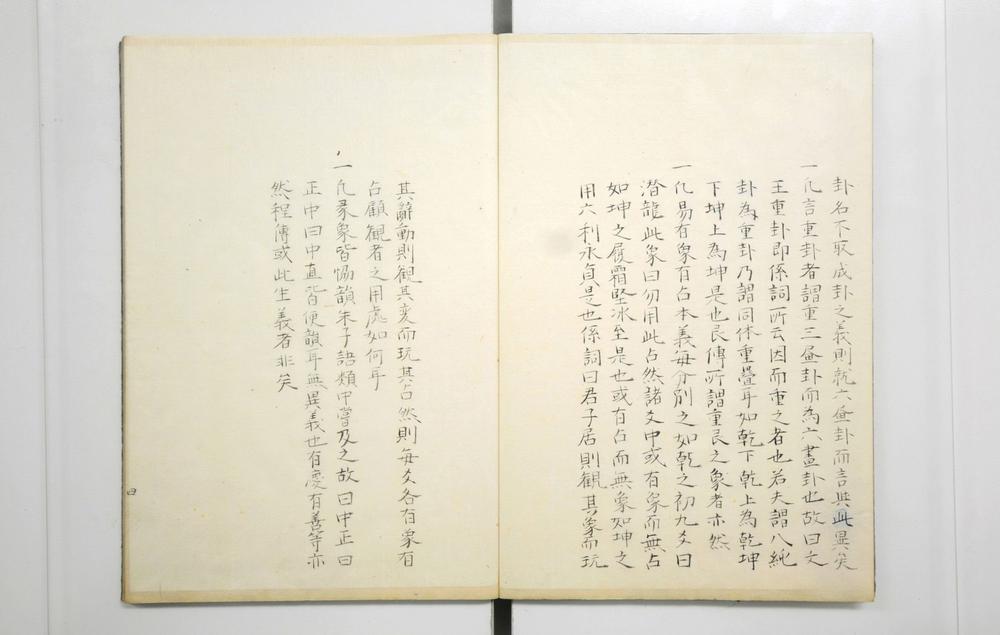 卦名不取成卦之義則就六畫卦而言與此異矣
一凡言重卦者謂重三畫卦而為六畫卦也故曰文
王重卦即係詞所云因而重之者也若夫謂八純
卦為重卦乃謂同体重疊耳如乾下乾上為乾坤
下坤上為坤是也艮傳所謂重艮之象者亦然
一凡易有象有占本義每分別之如乾之初九爻曰
潜龍此象曰勿用此占然諸爻中或有象而無占
如坤之履霜堅冰至是也或有占而無象如坤之
用六利永貞是也係詞曰君子居則観其象而玩
其辭動則観其変而玩其占然則每爻各有象有
占顧観者之用處如何耳
一凡彖象皆恊韻朱子語類中嘗及之故曰中正曰
正中曰中直皆便韻耳無異義也有慶有善等亦
然程傳或此生義者非矣
四